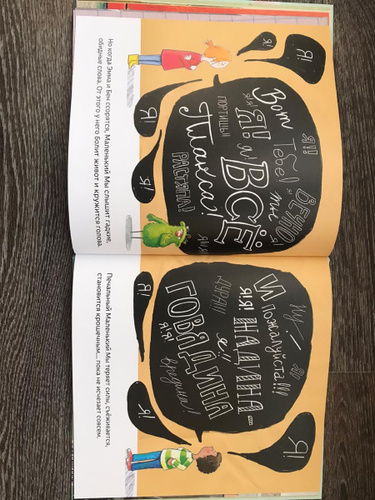 Я!
Я!
Я!
Я!
Вот
Тебе!
Я!!
ВЕЧНО
ты
ВСЁ
ПОРТИШЬ!
РАСТЯПА!
Но когда Эмма и Бен ссорятся, Маленький Мы слышит гадкие,
обидные слова. От этого у него болит живот и кружится голова.
Ну
И пожалуйста!!!
ЖАДИНА-
ДУРА!!!
ГОВЯДИНА
вредина!
Я!
Я!
Я!
Печальный Маленький Мы теряет силы, съёживается,
становится крошечным... пока не исчезает совсем.